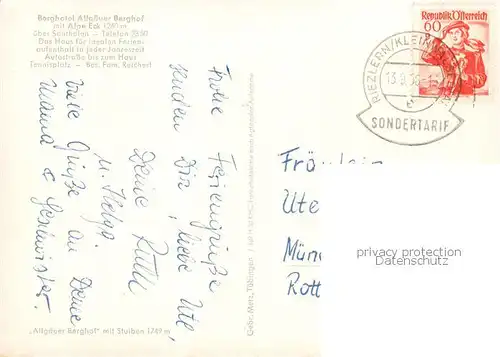 Berghotel Allgäuer Berghof
mit Alpe Eck 1260 m
über Sonthofen - Telefon
Das Haus für idealen Ferien-
aufenthalt in jeder Jahreszeit
Autostraße bis zum Haus
Tennisplatz - Bes. Fam. Reichert
Frohe Feriengrüße
senden Dir, liebe Ute,
Deine Ruth
u. Helga.
Viele Grüße an Deine
Mama & Geschwister.
„Allgäuer Berghof" mit Stuiben 1749 m
Gebr. Metz, Tübingen
60
Republik Österreich
RIEZLERN/KLEINWALSERTAL
SONDERTARIF
Fräulein
Ute
Mün
Rott
privacy protection
Datenschutz